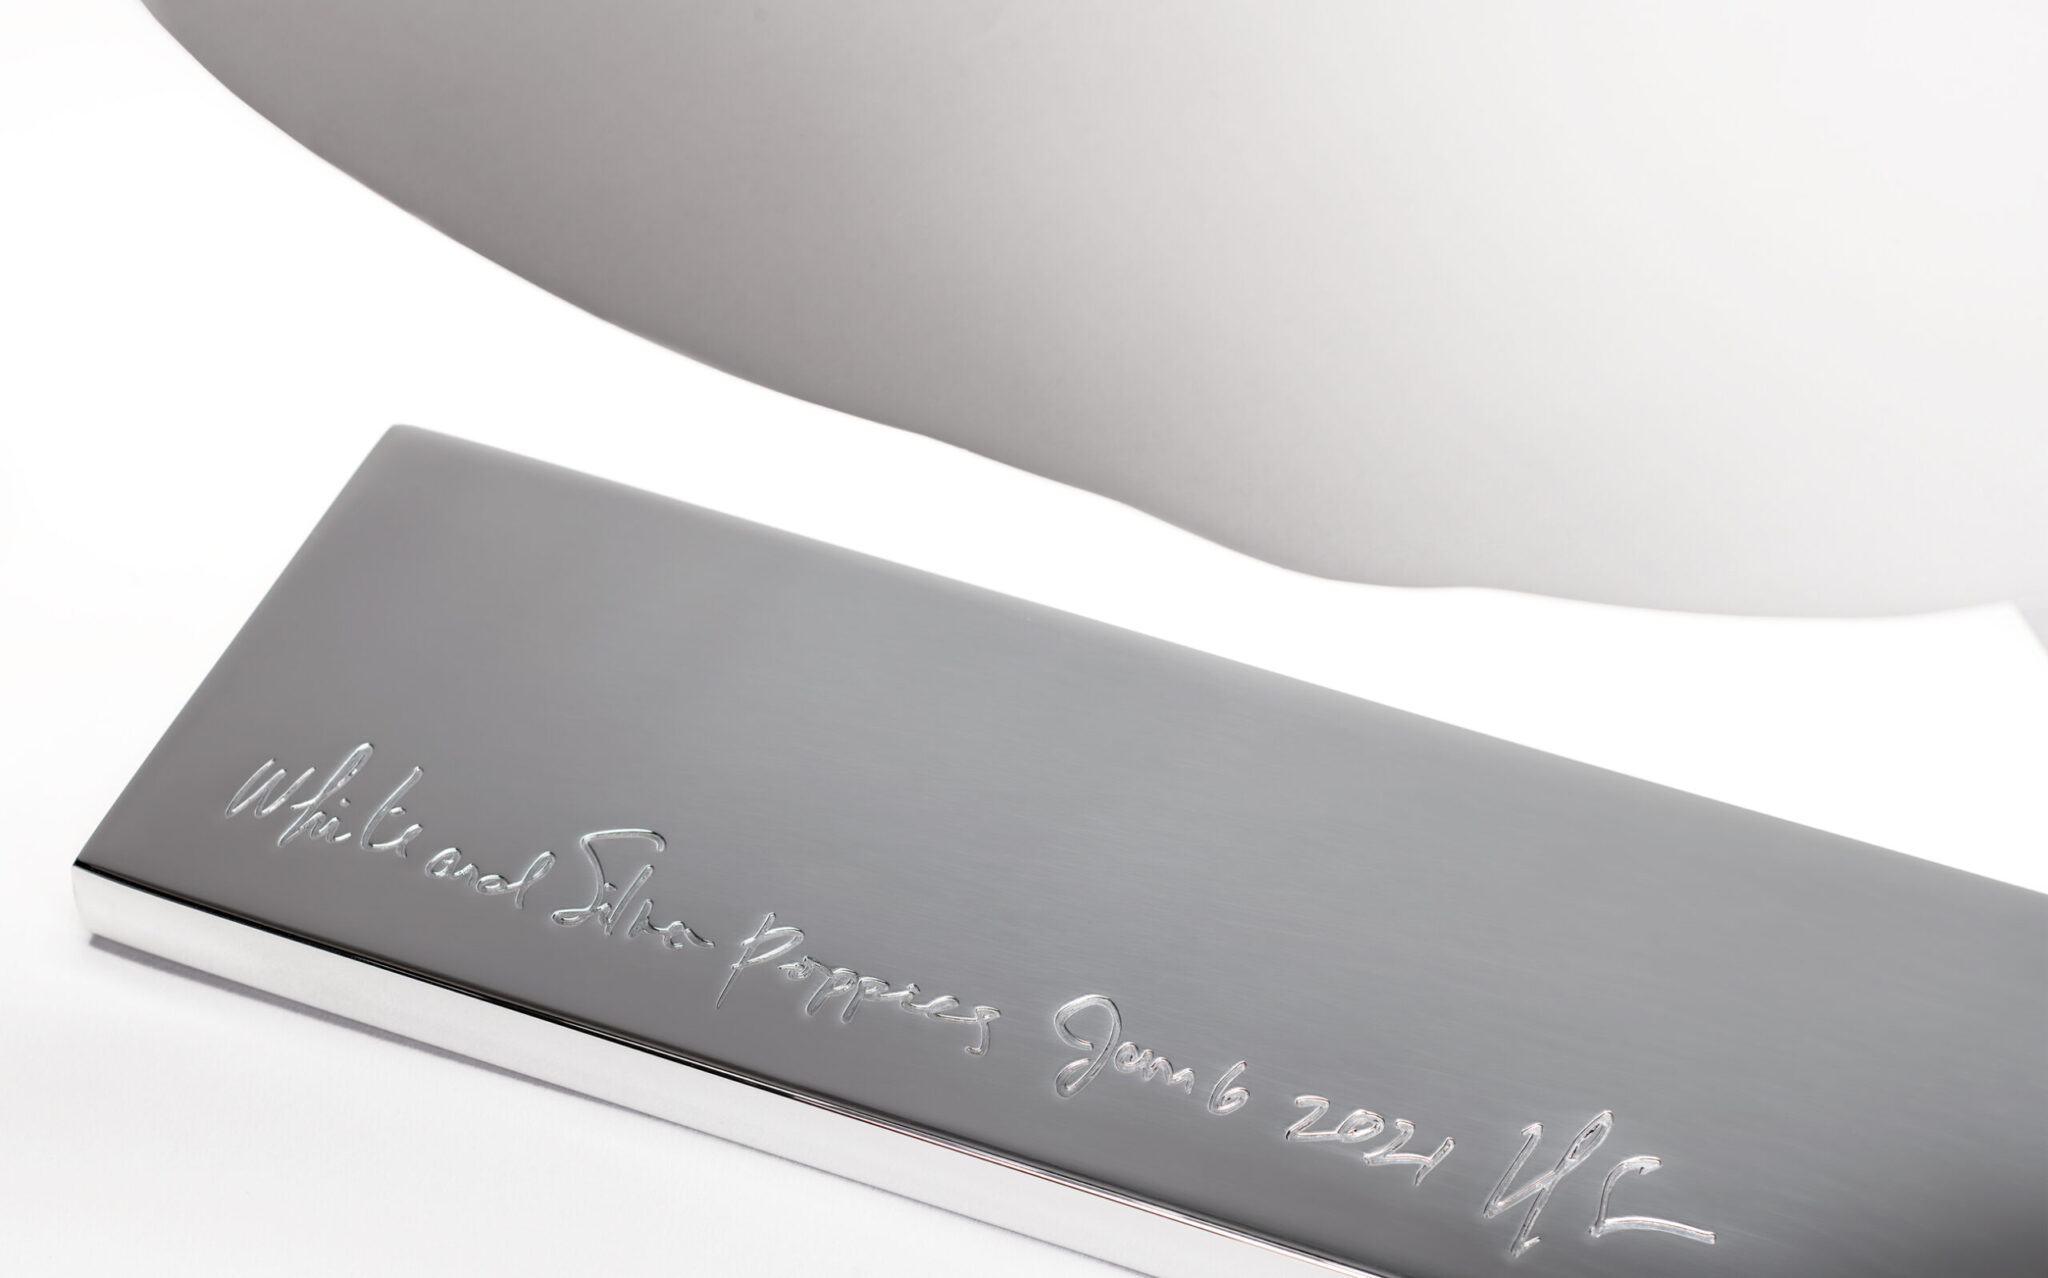 White and Silver Poppies Jan 6 2021